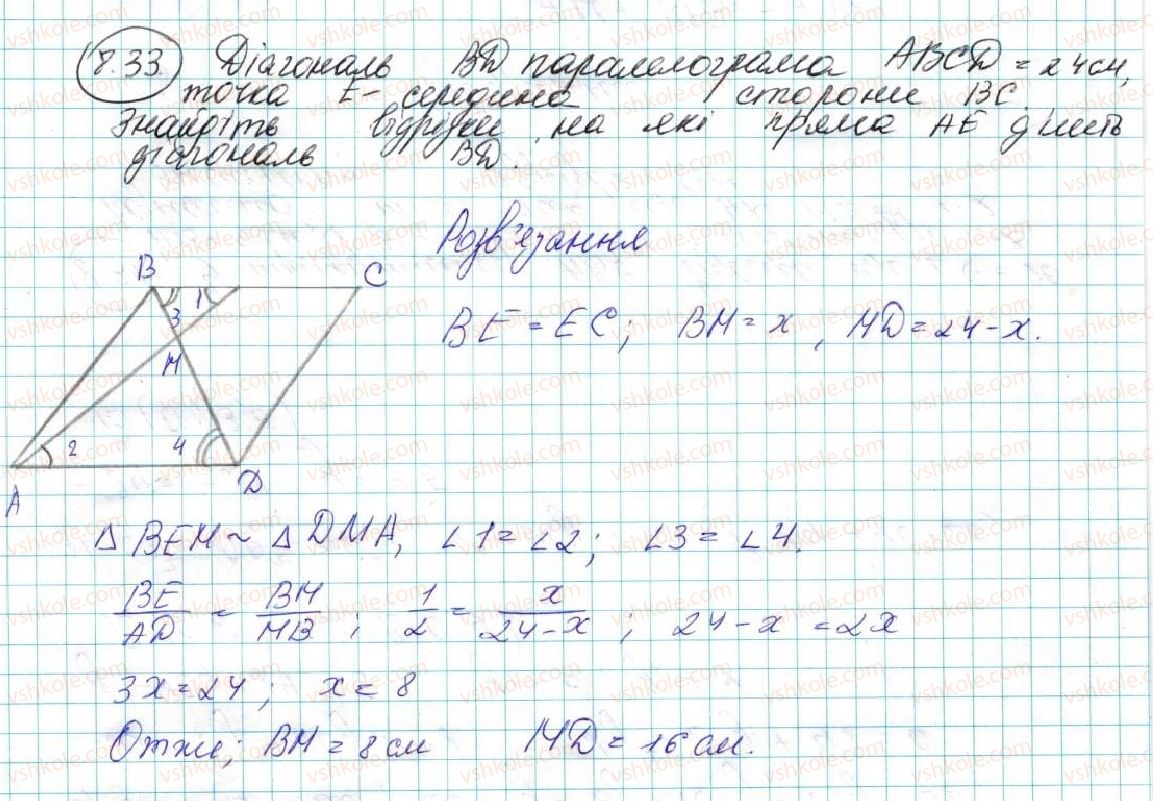 8.33 Діагональ BD паралелограма ABCD = 24см,
точка E- середина сторони BC.
Знайдіть відрізки на які пряма AE ділить
діагональ BD.
Розв'язання
B 3 1 C
M
2 4
A D
BE = EC; BM = x, MD = 24-x.
△ BEM ~ △ DMA, ∠1 = ∠2; ∠3 = ∠4.
BE/AD = BM/MB; 1/2 = x/24-x; 24-x = 2x
3x = 24; x = 8
Отже; BM = 8 см MD = 16 см.